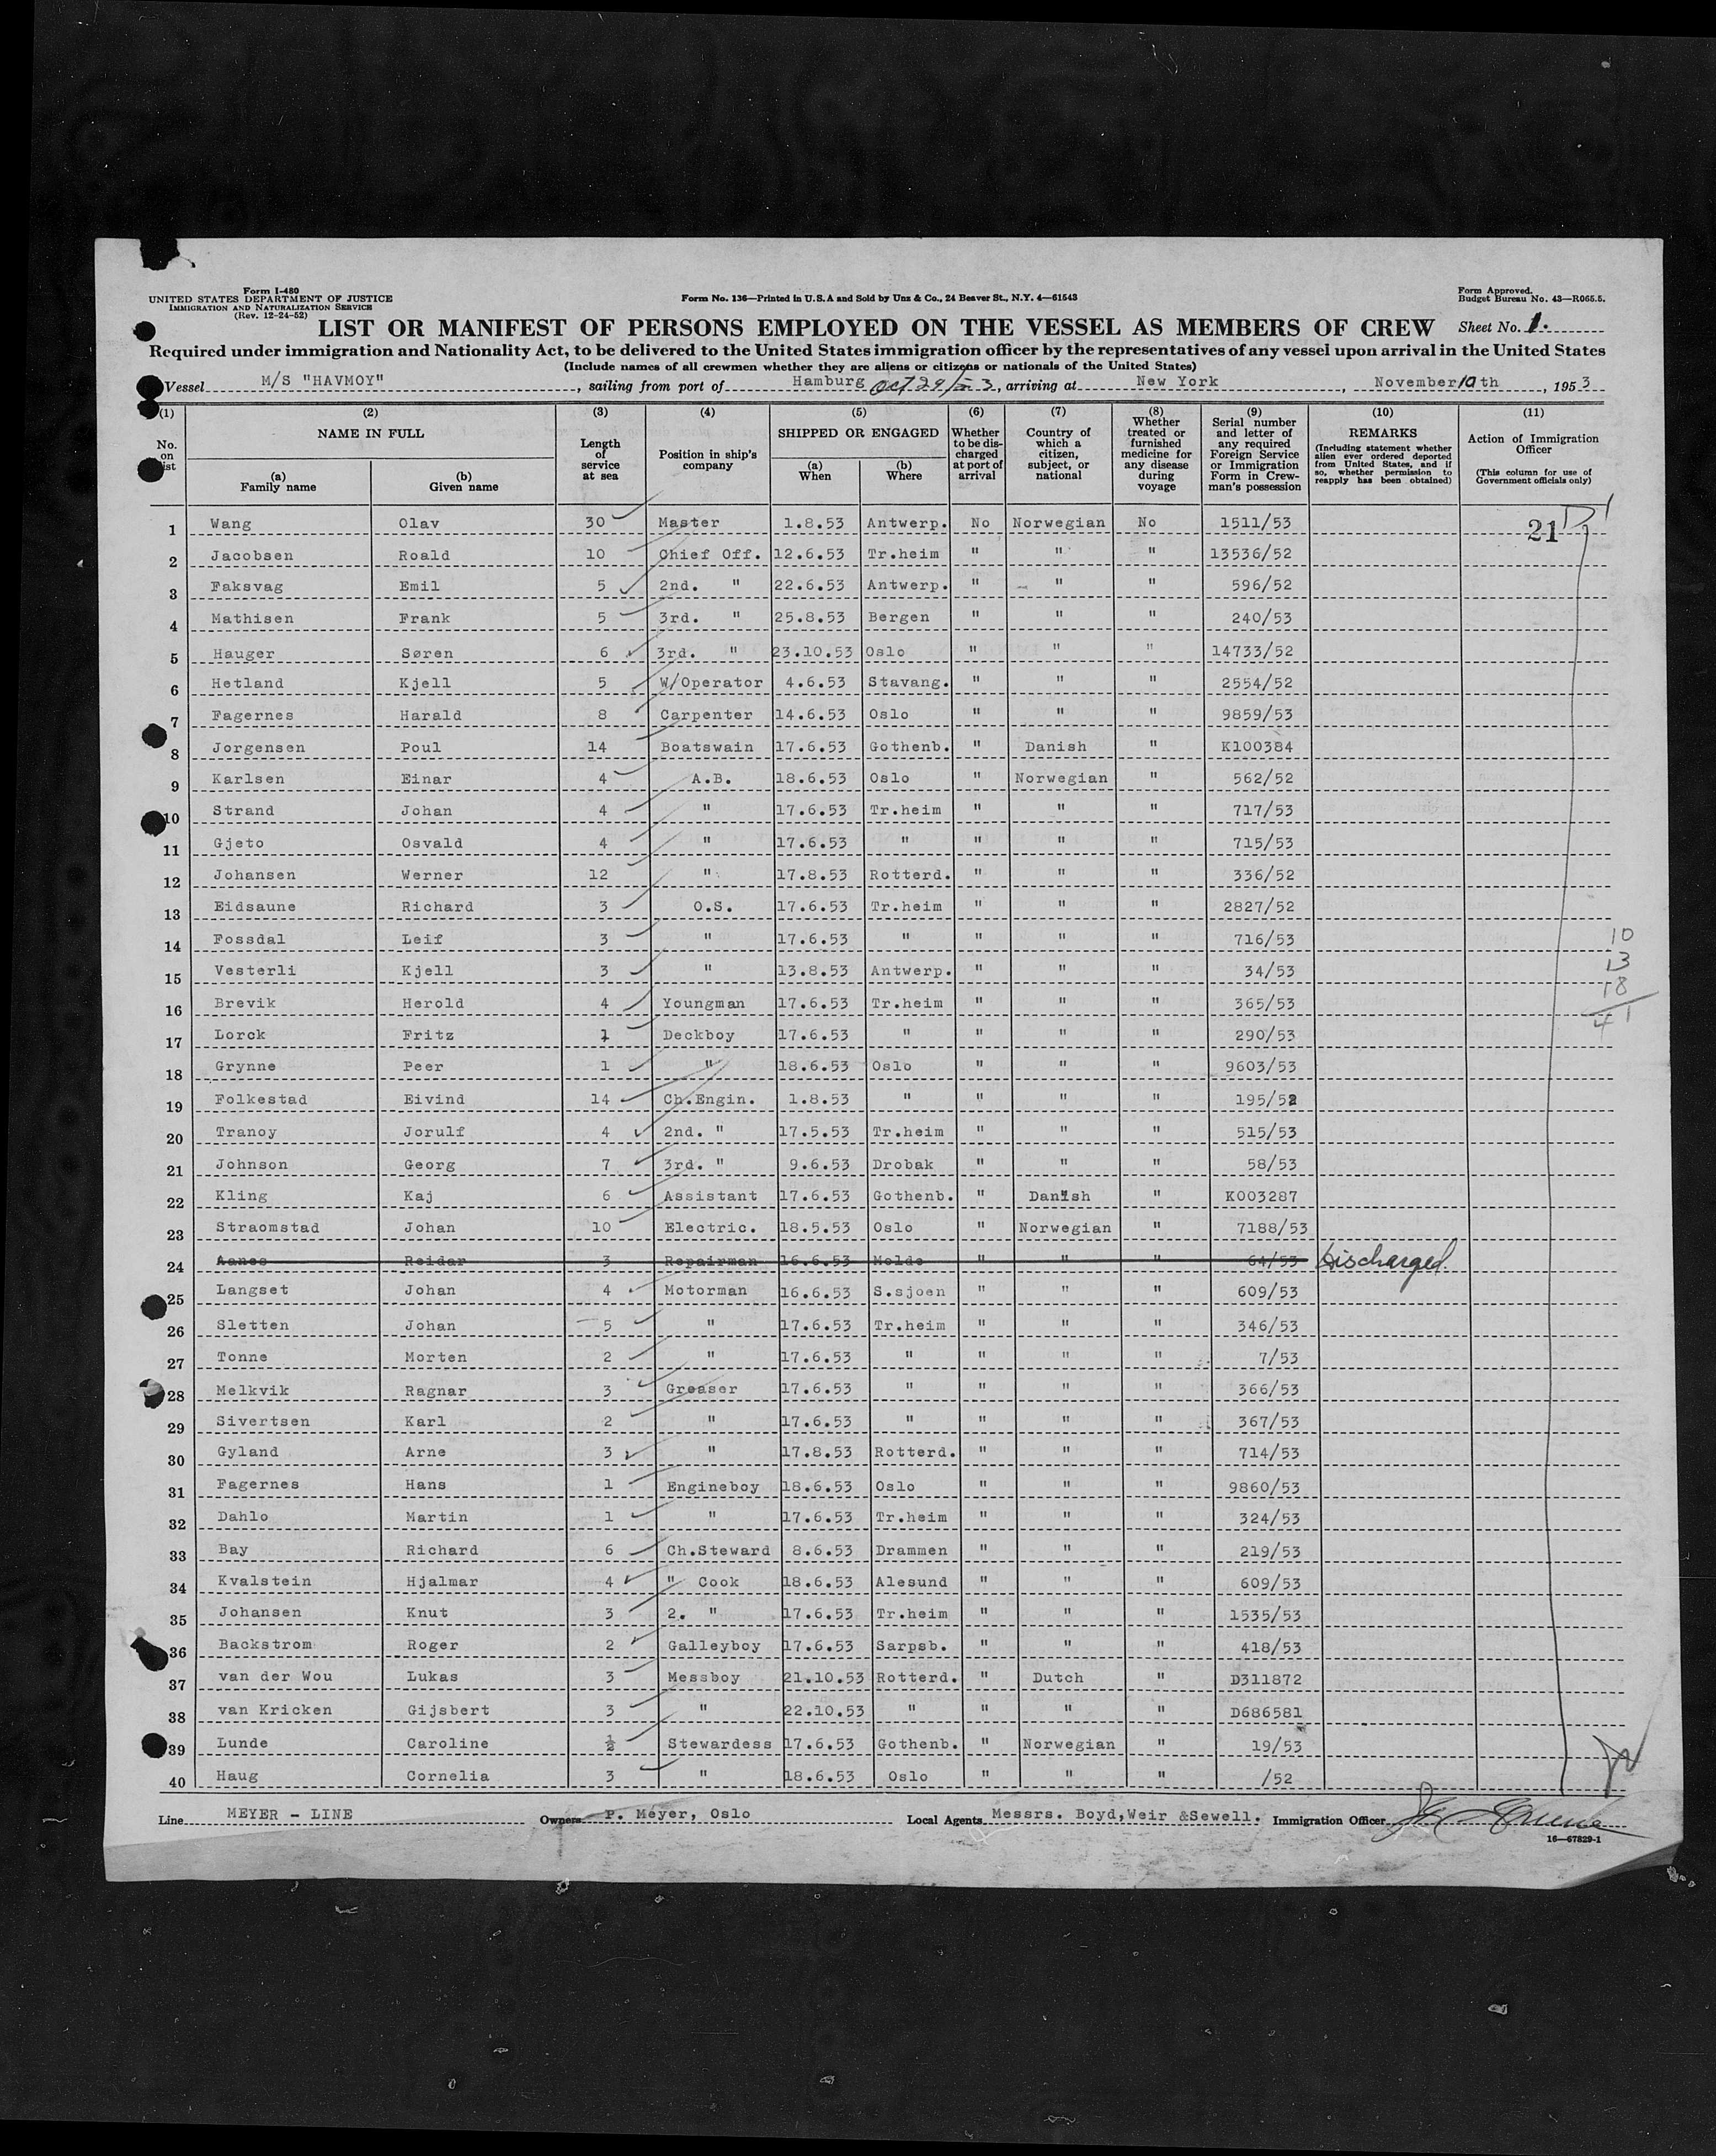 Form I-480
UNITED STATES DEPARTMENT OF JUSTICE
IMMIGRATION AND NATURALIZATION SERVICE
(Rev. 12-24-52)
Form No. 136—Printed in U.S.A and Sold by Unz & Co., 24 Beaver St., N.Y. 4—61543
Form Approved.
Budget Bureau No. 43—R065.5.
LIST OR MANIFEST OF PERSONS EMPLOYED ON THE VESSEL AS MEMBERS OF CREW
Sheet No. 1.
Required under immigration and Nationality Act, to be delivered to the United States immigration officer by the representatives of any vessel upon arrival in the United States
(Include names of all crewmen whether they are aliens or citizens or nationals of the United States)
Vessel M/S "HAVMOY", sailing from port of Hamburg Oct 29/53, arriving at New York, November 10th, 1953
(1) (2) (3) (4) (5) (6) (7) (8) (9) (10) (11)
No. on list
NAME IN FULL
(a) Family name
(b) Given name
Length of service at sea
Position in ship's company
SHIPPED OR ENGAGED
(a) When
(b) Where
Whether to be discharged at port of arrival
Country of which a citizen, subject, or national
Whether treated or furnished medicine for any disease during voyage
Serial number and letter of any required Foreign Service or Immigration Form in Crewman's possession
REMARKS
(Including statement whether alien ever ordered deported from United States, and if so, whether permission to reapply has been obtained)
Action of Immigration Officer
(This column for use of Government officials only)
1 Wang Olav 30 Master 1.8.53 Antwerp. No Norwegian No 1511/53 21
2 Jacobsen Roald 10 Chief Off. 12.6.53 Tr.heim " " " 13536/52
3 Faksvag Emil 5 2nd. " 22.6.53 Antwerp. " " " 596/52
4 Mathisen Frank 5 3rd. " 25.8.53 Bergen " " " 240/53
5 Hauger Søren 6 3rd. " 23.10.53 Oslo " " " 14733/52
6 Hetland Kjell 5 W/Operator 4.6.53 Stavang. " " " 2554/52
7 Fagernes Harald 8 Carpenter 14.6.53 Oslo " " " 9859/53
8 Jorgensen Poul 14 Boatswain 17.6.53 Gothenb. " Danish " K100384
9 Karlsen Einar 4 A.B. 18.6.53 Oslo " Norwegian " 562/52
10 Strand Johan 4 " 17.6.53 Tr.heim " " " 717/53
11 Gjeto Osvald 4 " 17.6.53 " " " " 715/53
12 Johansen Werner 12 " 17.8.53 Rotterd. " " " 336/52
13 Eidsaune Richard 3 O.S. 17.6.53 Tr.heim " " " 2827/52
14 Fossdal Leif 3 " 17.6.53 " " " " 716/53
15 Vesterli Kjell 3 " 13.8.53 Antwerp. " " " 34/53
16 Brevik Herold 4 Youngman 17.6.53 Tr.heim " " " 365/53
17 Lorck Fritz 1 Deckboy 17.6.53 " " " " 290/53
18 Grynne Peer 1 " 18.6.53 Oslo " " " 9603/53
19 Folkestad Eivind 14 Ch.Engin. 1.8.53 " " " " 195/52
20 Tranoy Jorulf 4 2nd. " 17.5.53 Tr.heim " " " 515/53
21 Johnson Georg 7 3rd. " 9.6.53 Drobak " " " 58/53
22 Kling Kaj 6 Assistant 17.6.53 Gothenb. " Danish " K003287
23 Straomstad Johan 10 Electric. 18.5.53 Oslo " Norwegian " 7188/53
24 Aanes Reidar 3 Repairman 16.6.53 Molde " " " 64/53 Discharged.
25 Langset Johan 4 Motorman 16.6.53 S.sjoen " " " 609/53
26 Sletten Johan 5 " 17.6.53 Tr.heim " " " 346/53
27 Tonne Morten 2 " 17.6.53 " " " " 7/53
28 Melkvik Ragnar 3 Greaser 17.6.53 " " " " 366/53
29 Sivertsen Karl 2 " 17.6.53 " " " " 367/53
30 Gyland Arne 3 " 17.8.53 Rotterd. " " " 714/53
31 Fagernes Hans 1 Engineboy 18.6.53 Oslo " " " 9860/53
32 Dahlo Martin 1 " 17.6.53 Tr.heim " " " 324/53
33 Bay Richard 6 Ch.Steward 8.6.53 Drammen " " " 219/53
34 Kvalstein Hjalmar 4 " Cook 18.6.53 Alesund " " " 609/53
35 Johansen Knut 3 2. " 17.6.53 Tr.heim " " " 1535/53
36 Backstrom Roger 2 Galleyboy 17.6.53 Sarpsb. " " " 418/53
37 van der Wou Lukas 3 Messboy 21.10.53 Rotterd. " Dutch " D311872
38 van Kricken Gijsbert 3 " 22.10.53 " " " " D686581
39 Lunde Caroline ½ Stewardess 17.6.53 Gothenb. " Norwegian " 19/53
40 Haug Cornelia 3 " 18.6.53 Oslo " " " /52
10
13
18
41
Line MEYER - LINE Owners P. Meyer, Oslo Local Agents Messrs. Boyd,Weir &Sewell. Immigration Officer
16—67829-1